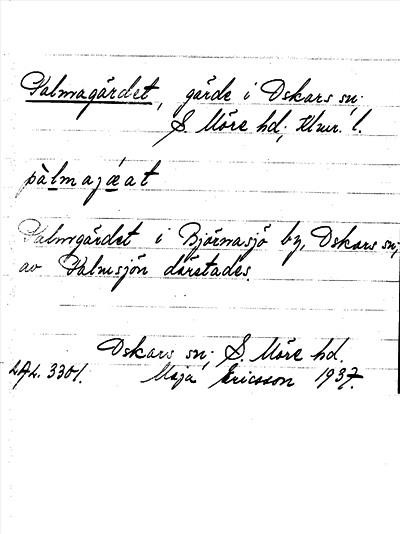 Palmagärdet, gärde i Oskars sn;
S. Möre hd; Klmr. l.
pàlmajǽat
Palmgärdet i Björnasjö by, Oskars sn;
av Palmsjön därstädes.
Oskars sn; S. Möre hd.
Maja Ericsson 1937.
3301.